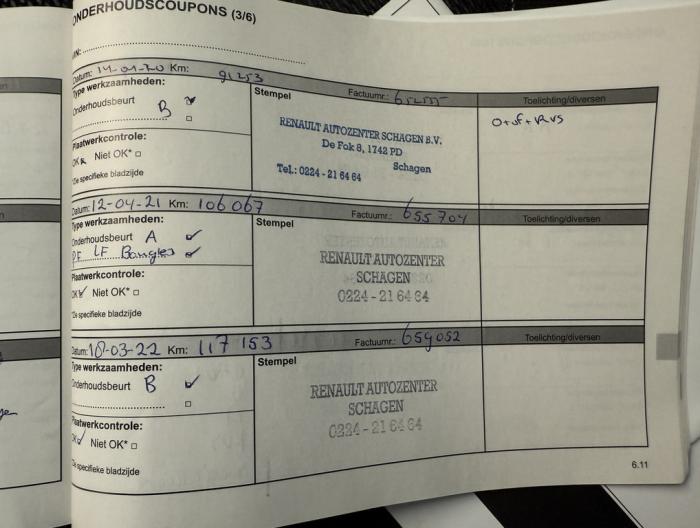 ONDERHOUDSCOUPONS (3/6)
Datum: 14-01-20 Km: 91253 Factuurnr.: Toelichting/diversen
Type werkzaamheden:
Onderhoudsbeurt B
Plaatwerkcontrole:
OK Niet OK*
*Zie specifieke bladzijde
Stempel
RENAULT AUTOZENTER SCHAGEN B.V.
De Fok 8, 1742 PD
Schagen
Tel.: 0224 - 21 64 64
O+
Datum: 12-04-21 Km: 106067 Factuurnr.: 655704 Toelichting/diversen
Type werkzaamheden:
Onderhoudsbeurt A
LF
Plaatwerkcontrole:
OK Niet OK*
*Zie specifieke bladzijde
Stempel
RENAULT AUTOZENTER
SCHAGEN
0224 - 21 64 64
Datum: 18-03-22 Km: 117 153 Factuurnr.: 659052 Toelichting/diversen
Type werkzaamheden:
Onderhoudsbeurt B
Plaatwerkcontrole:
OK Niet OK*
*Zie specifieke bladzijde
Stempel
RENAULT AUTOZENTER
SCHAGEN
0224 - 21 64 64
6.11